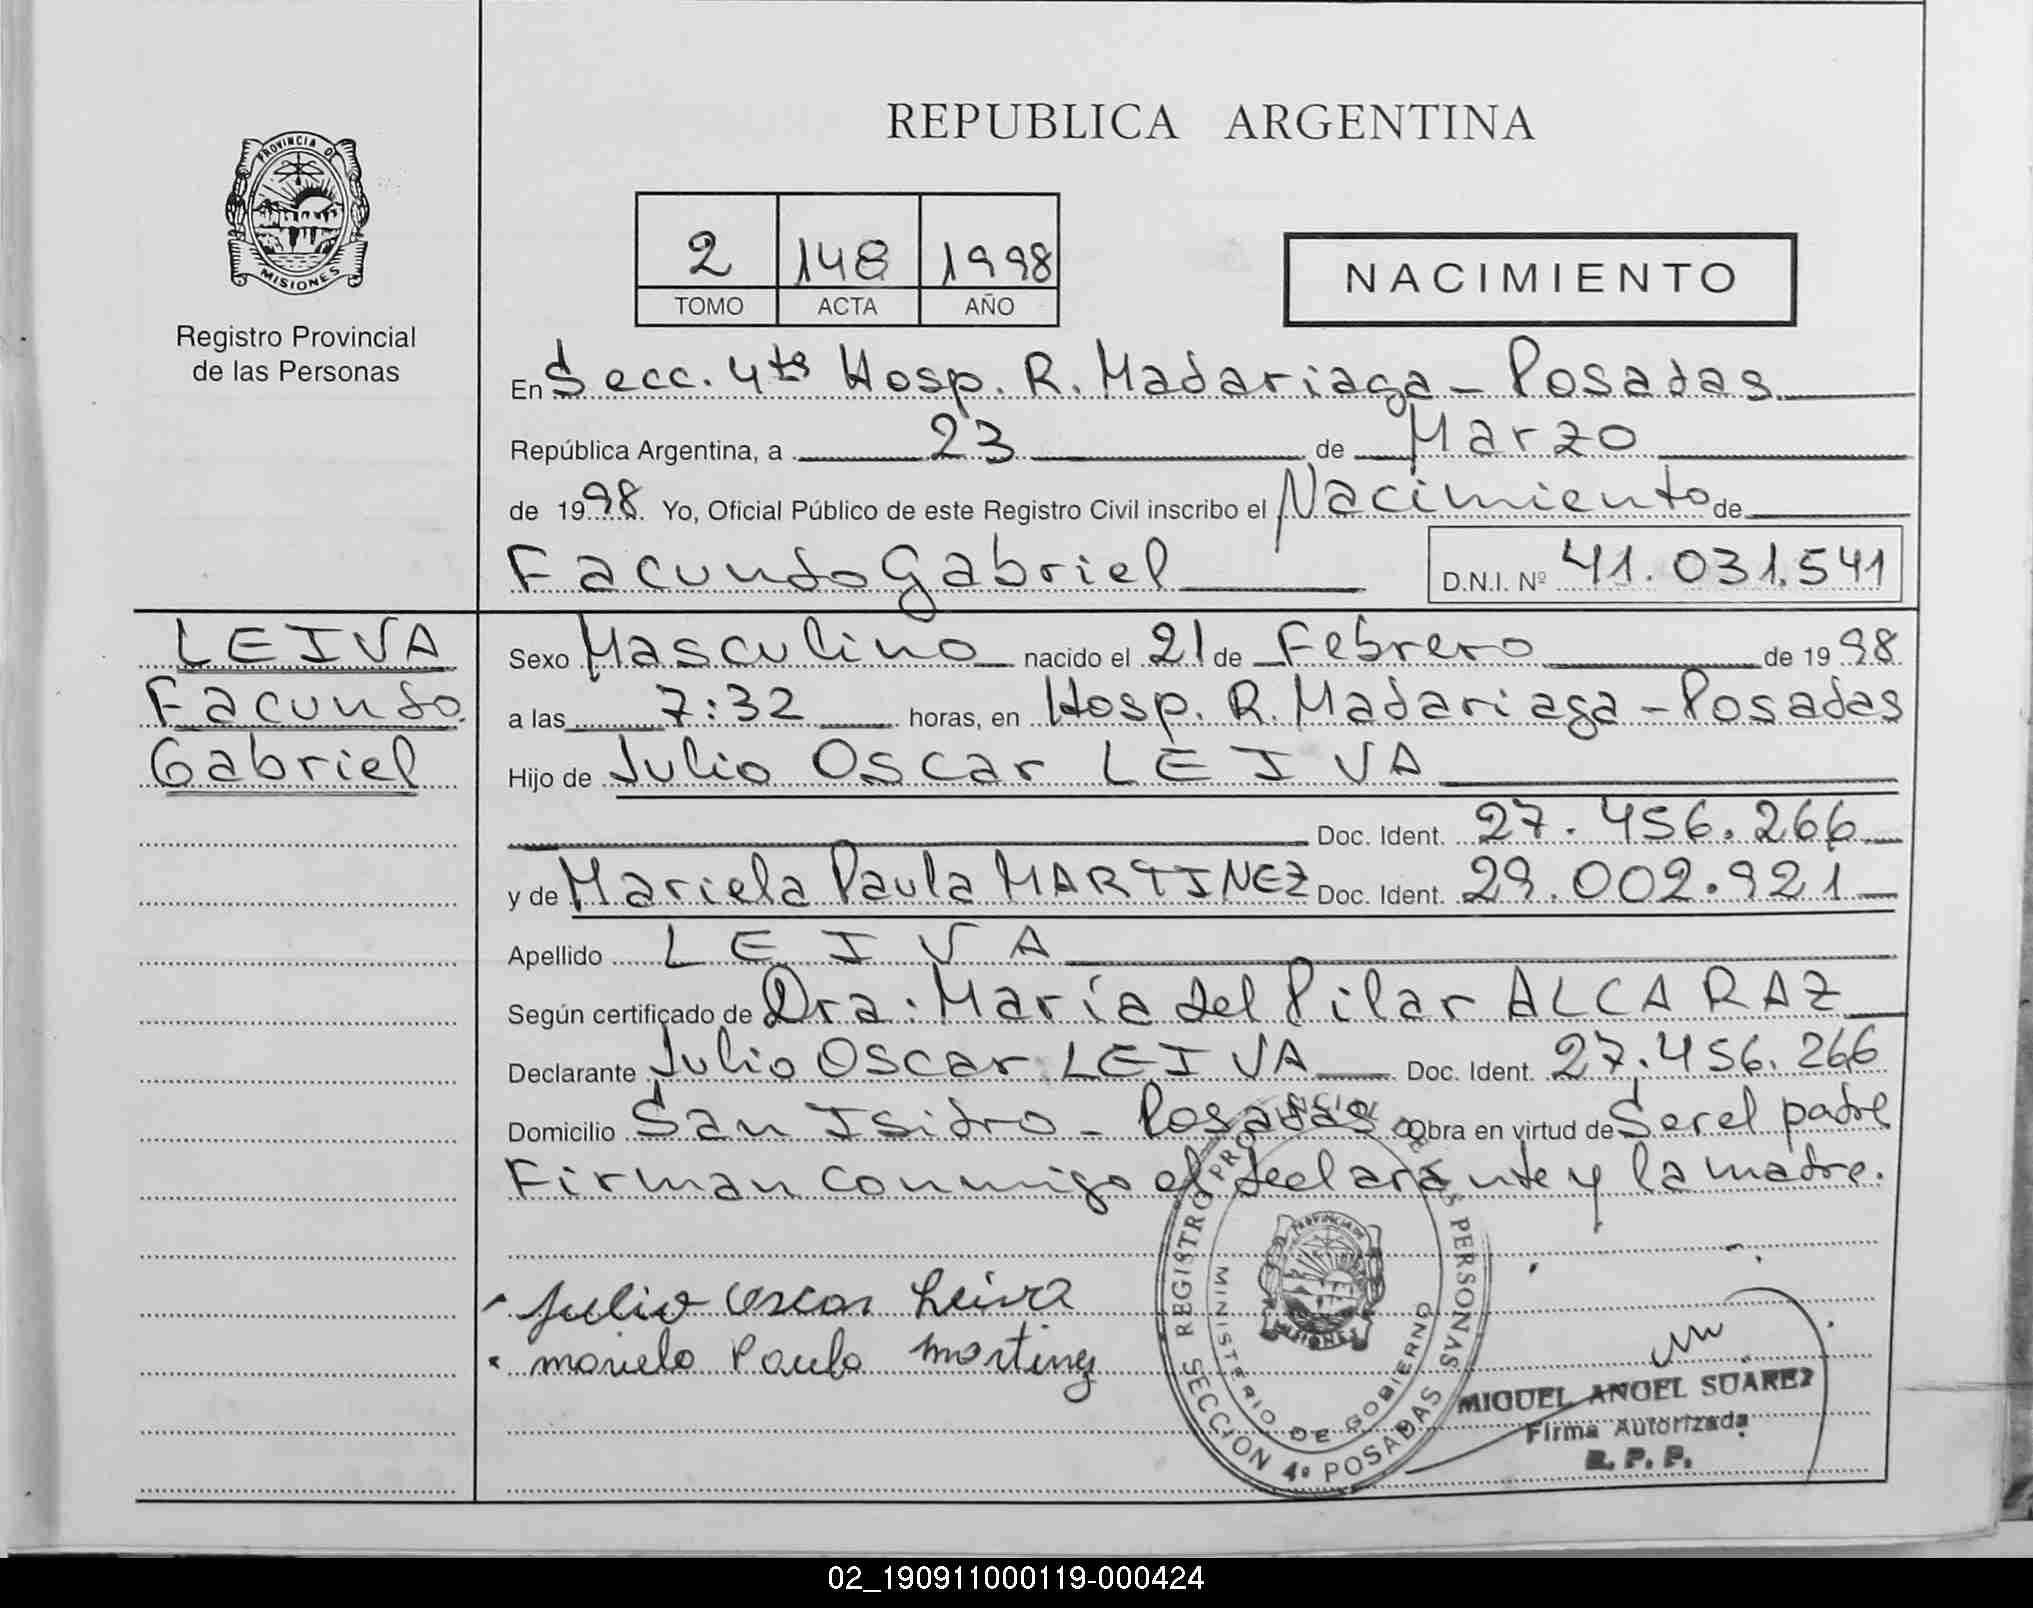 REPUBLICA ARGENTINA
PROVINCIA DE
MISIONES
Registro Provincial
de las Personas
2 148 1998
TOMO ACTA AÑO
NACIMIENTO
En Secc. 4ta Hosp. R. Madariaga - Posadas
República Argentina, a 23 de Marzo
de 1998 Yo, Oficial Público de este Registro Civil inscribo el Nacimiento de
Facundo Gabriel D.N.I. Nº 41.031.541
LEIVA
Facundo
Gabriel
Sexo Masculino nacido el 21 de Febrero de 1998
a las 7:32 horas, en Hosp. R. Madariaga - Posadas
Hijo de Julio Oscar LEIVA
Doc. Ident. 27.456.266
y de Mariela Paula MARTINEZ Doc. Ident. 29.002.921
Apellido LEIVA
Según certificado de Dra: María del Pilar ALCARAZ
Declarante Julio Oscar LEIVA Doc. Ident. 27.456.266
Domicilio San Isidro - Posadas Obra en virtud de Ser el padre
Firman conmigo el declarante y la madre.
Julio Oscar Leiva
Mariela Paula Martinez
REGISTRO PROVINCIAL DE LAS PERSONAS
MINISTERIO DE GOBIERNO
PROVINCIA DE
MISIONES
SECCION 4º POSADAS
MIGUEL ANGEL SUAREZ
Firma Autorizada
R. P. P.
02_190911000119-000424